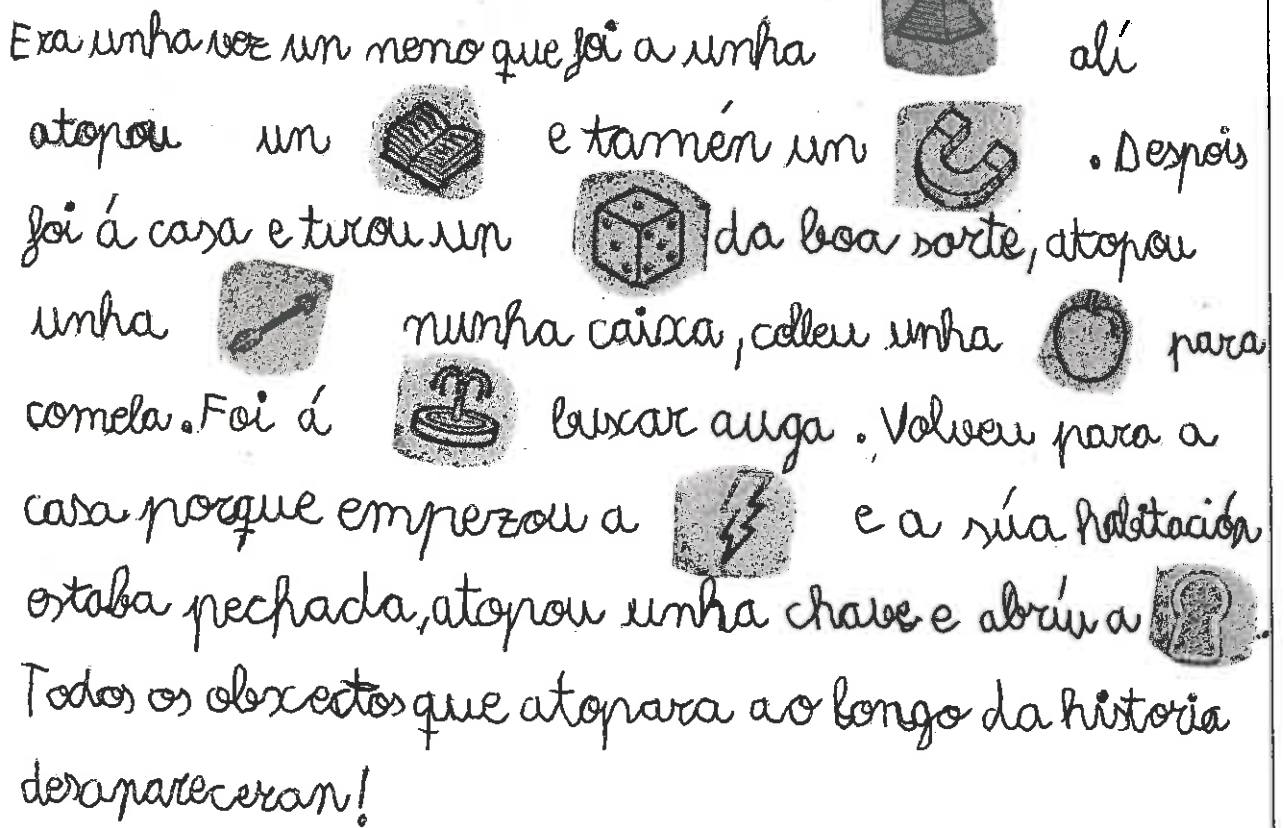 Era unha vez un neno que foi a unha alí
atopou un e tamén un . Despois
foi á casa e tirou un da boa sorte, atopou
unha nunha caixa, colleu unha para
comela. Foi á buscar auga. Volveu para a
casa porque empezou a e a súa habitación
estaba pechada, atopou unha chave e abríu a .
Todos os obxectos que atopara ao longo da historia
desapareceran!